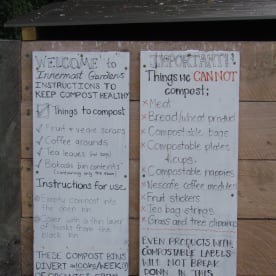 WELCOME to
Innermost Gardens
INSTRUCTIONS TO
KEEP COMPOST HEALTHY
Things to compost
Fruit + veggie scraps
Coffee grounds
Tea leaves (no bags)
Bokashi bin contents
Instructions for use
Empty compost into
the open bin
Cover with a thin layer
of
from the
black bin
THESE COMPOST BINS
DIVERT
IMPORTANT!!
Things we CANNOT
compost:
Meat
Bread/wheat product
Compostable bags
Compostable plates
+ cups
Compostable nappies
Nescafe coffee modules
Fruit stickers
Tea bag strings
Grass and tree clippings
EVEN PRODUCTS WITH
COMPOSTABLE LABELS
WILL NOT BREAK
DOWN IN THIS